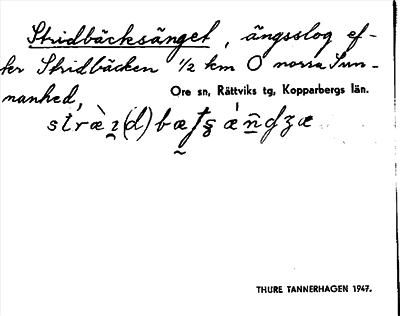 Stridbäcksänget, ängsslog ef-
ter Stridbäcken 1/2 km O norra Sun-
nanhed,
Ore sn, Rättviks tg, Kopparbergs län.
THURE TANNERHAGEN 1947.